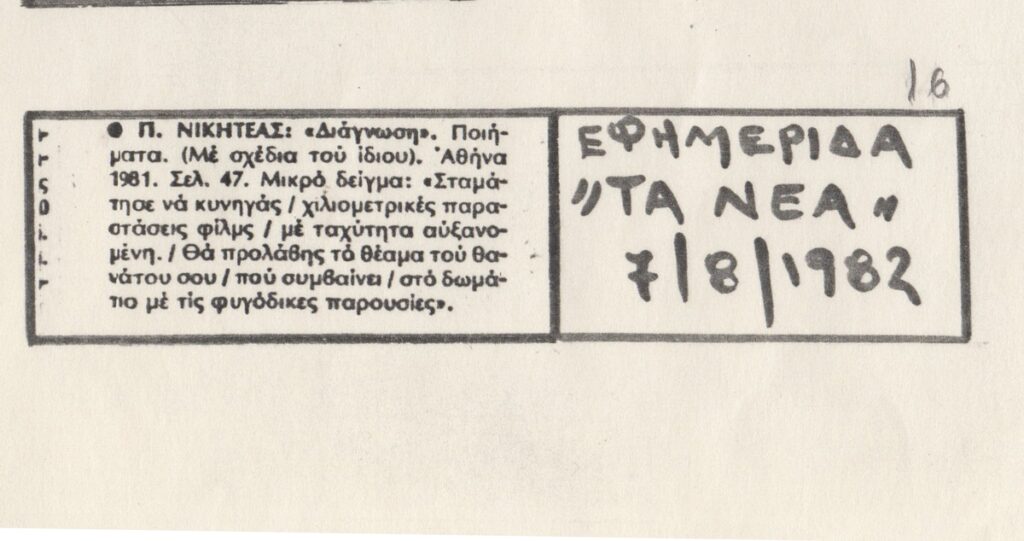 16
● Π. ΝΙΚΗΤΕΑΣ: «Διάγνωση». Ποιή-
ματα. (Μέ σχέδια τοῦ ἴδιου). Ἀθήνα
1981. Σελ. 47. Μικρό δεῖγμα: «Σταμά-
τησε νά κυνηγᾶς / χιλιομετρικές παρα-
στάσεις φίλμς / μέ ταχύτητα αὐξανο-
μένη. / Θά προλάβης τό θέαμα τοῦ θα-
νάτου σου / πού συμβαίνει / στό δωμά-
τιο μέ τίς φυγόδικες παρουσίες».
ΕΦΗΜΕΡΙΔΑ
"ΤΑ ΝΕΑ"
7/8/1982